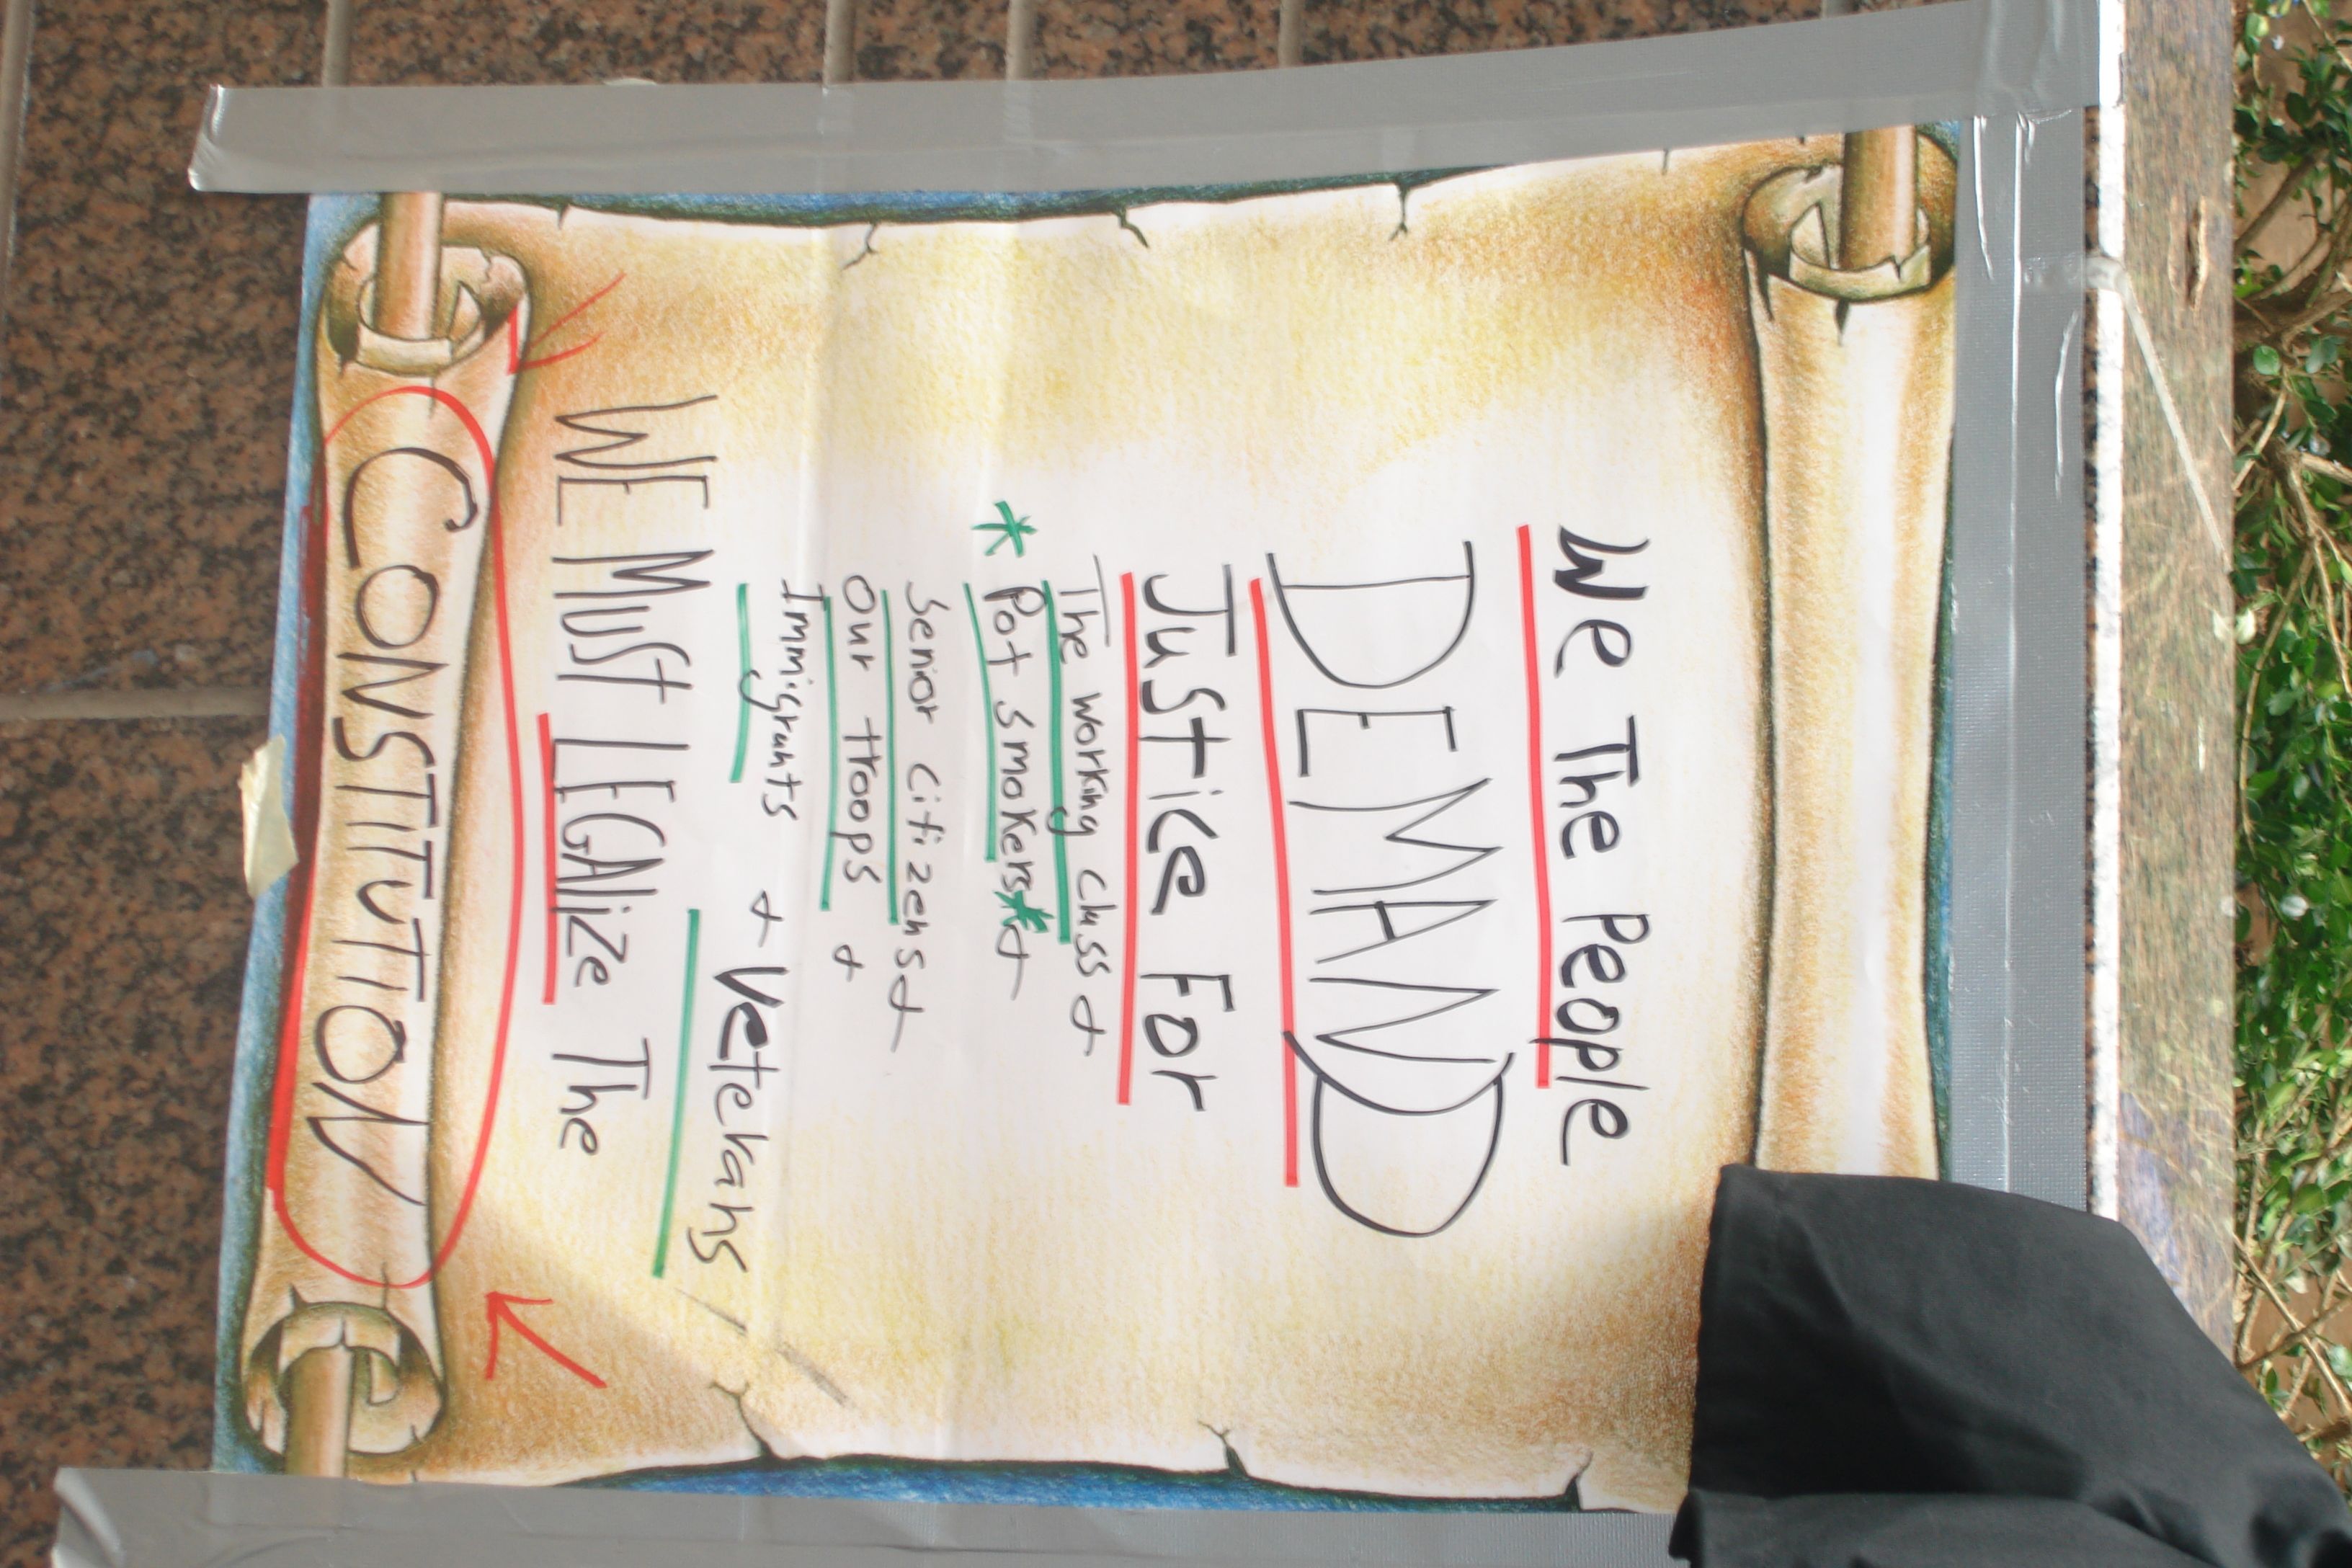 We The People
DEMAND
Justice For
The working class +
* Pot smokers * +
Senior Citizens +
Our troops +
Immigrants + Veterans!
WE MUST LEGALize The
CONSTITUTION